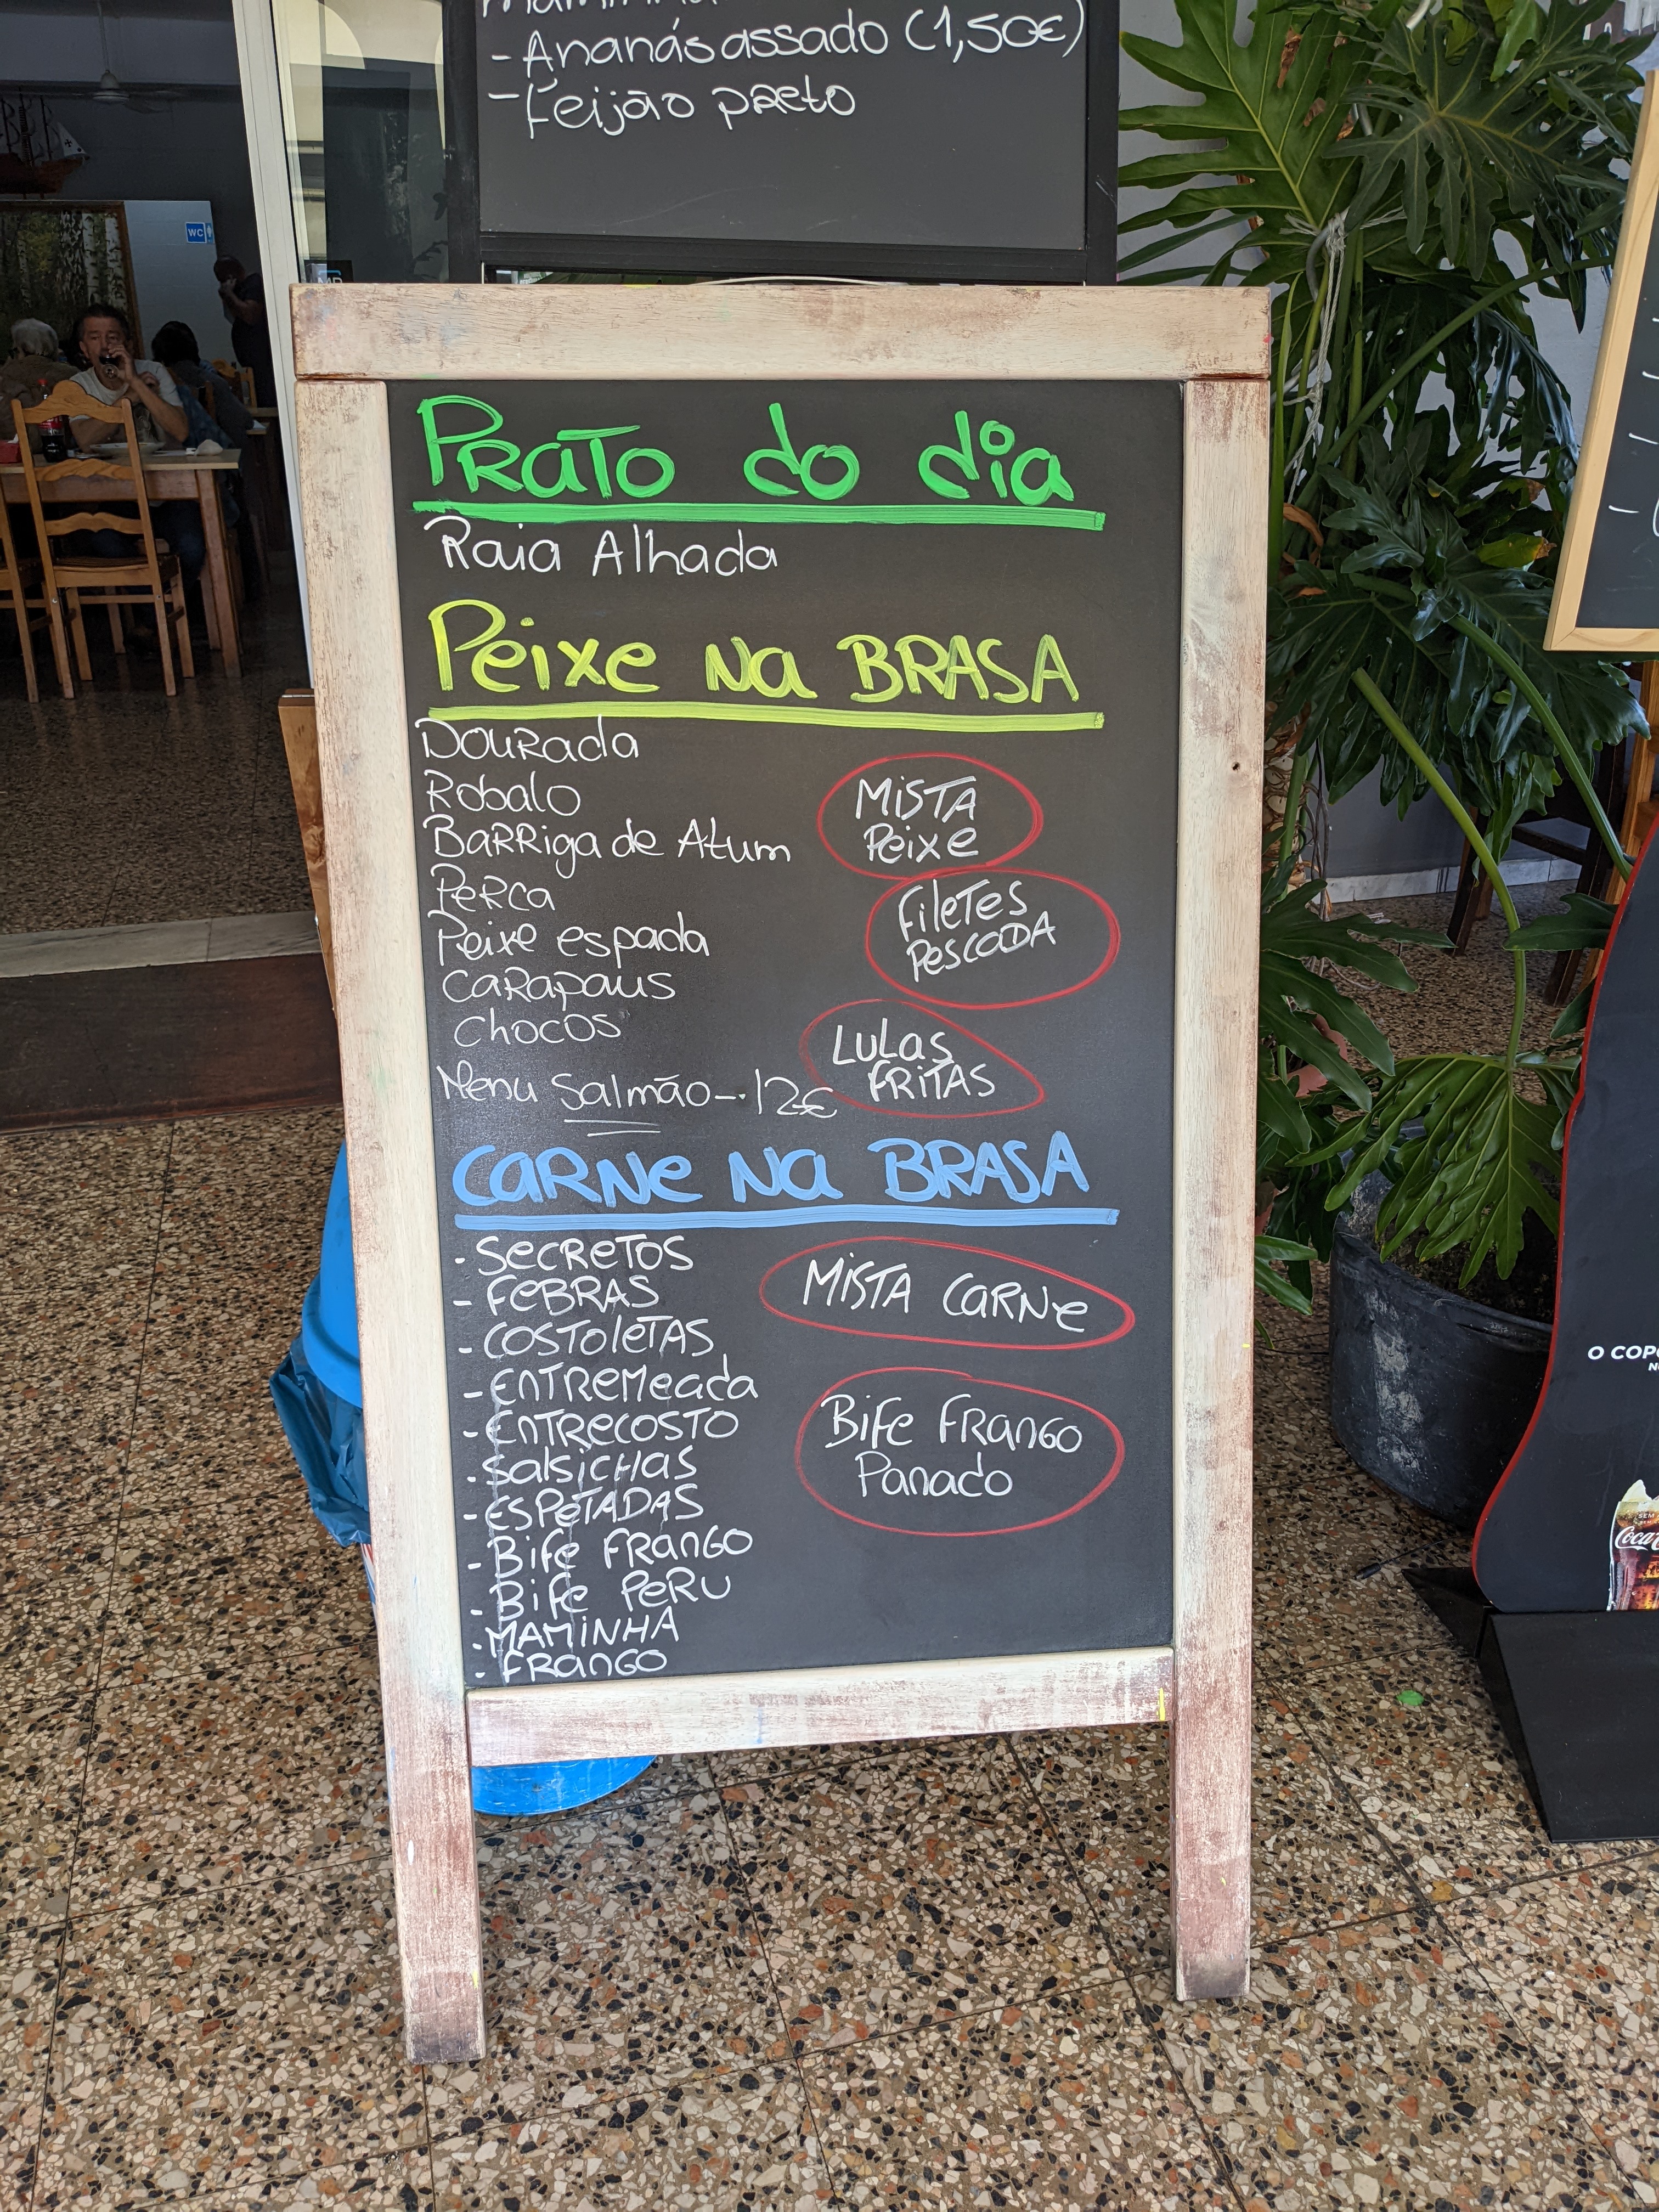 - Ananás assado (1,50€)
- Feijão preto
WC
Prato do dia
Raia Alhada
Peixe na BRASA
Dourada
Robalo
Barriga de Atum
Perca
Peixe espada
Carapaus
Chocos
Menu Salmão-.12€
MISTA
Peixe
Filetes
Pescada
Lulas
FRITAS
Carne na BRASA
- Secretos
- FeBRAS
- Costoletas
- Entremeada
- Entrecosto
- Salsichas
- Espetadas
- Bife Frango
- Bife Peru
- MAMINHA
- Frango
MISTA Carne
Bife Frango
Panado
O COP
Coca-C